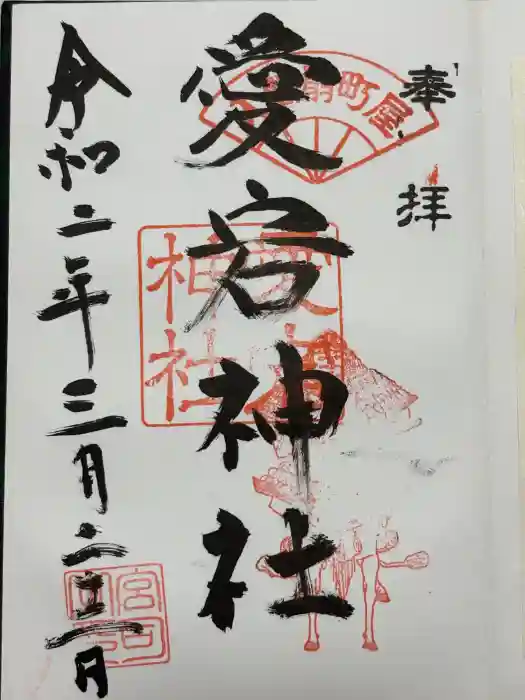 奉拝
扇町屋
愛宕神社
愛宕
神社
令和二年三月二十二日
宮司